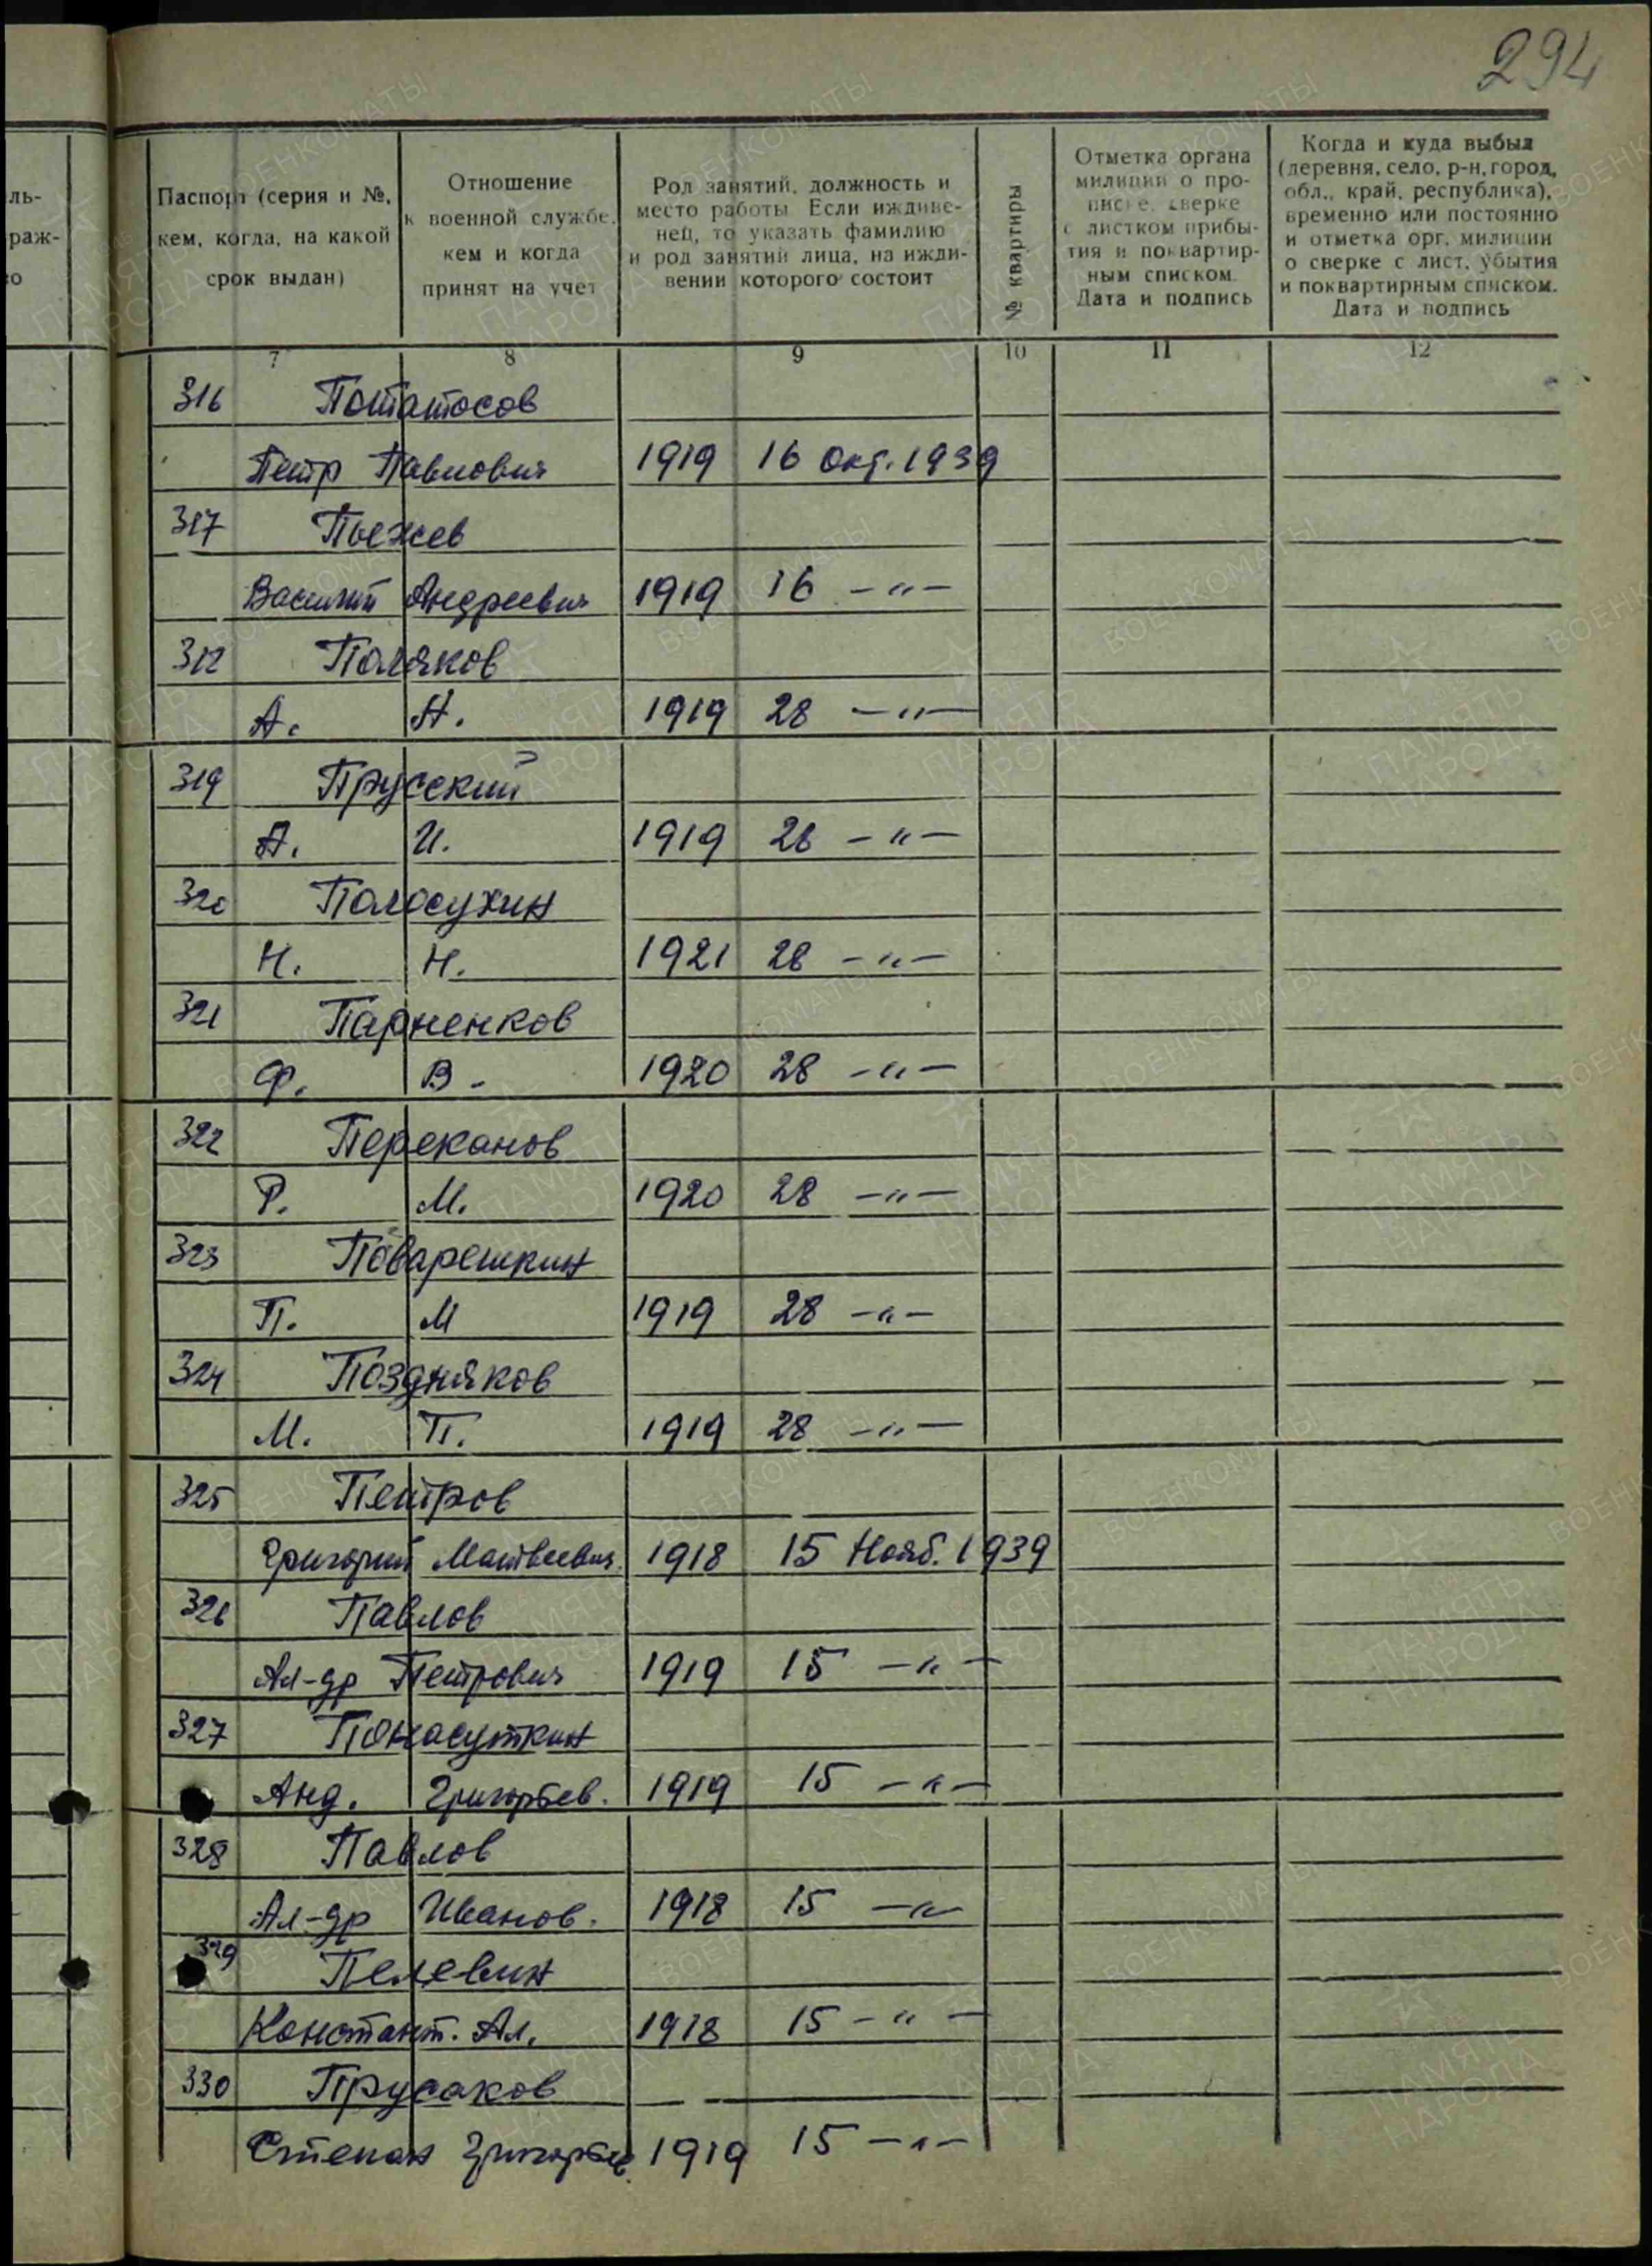 294
Паспорт (серия и №, кем, когда, на какой срок выдан)
Отношение к военной службе, кем и когда принят на учет
Род занятий, должность и место работы Если иждивенец, то указать фамилию и род занятий лица, на иждивении которого состоит
№ квартиры
Отметка органа милиции о прописке, сверке с листком прибытия и поквартирным списком. Дата и подпись
Когда и куда выбыл (деревня, село, р-н, город, обл., край, республика), временно или постоянно и отметка орг. милиции о сверке с лист. убытия и поквартирным списком. Дата и подпись
7 8 9 10 11 12
316 Потатосов
Петр Павлович 1919 16 Окт. 1939
317 Пьежев
Василий Андреевич 1919 16 –"–
318 Поляков
А. А. 1919 28 –"–
319 Прусский
А. И. 1919 28 –"–
320 Полосухин
Н. Н. 1921 28 –"–
321 Парненков
Ф. В. 1920 28 –"–
322 Переканов
Р. М. 1920 28 –"–
323 Поварешкин
П. М 1919 28 –"–
324 Поздняков
М. П. 1919 28 –"–
325 Петров
Григорий Матвеевич 1918 15 Нояб. 1939
326 Павлов
Ал-др Петрович 1919 15 –"–
327 Понасуткин
Анд. Григорьев. 1919 15 –"–
328 Павлов
Ал-др Иванов. 1918 15 –"–
329 Пелевин
Констант. Ал. 1918 15 –"–
330 Прусаков
Степан Григорьев. 1919 15 –"–